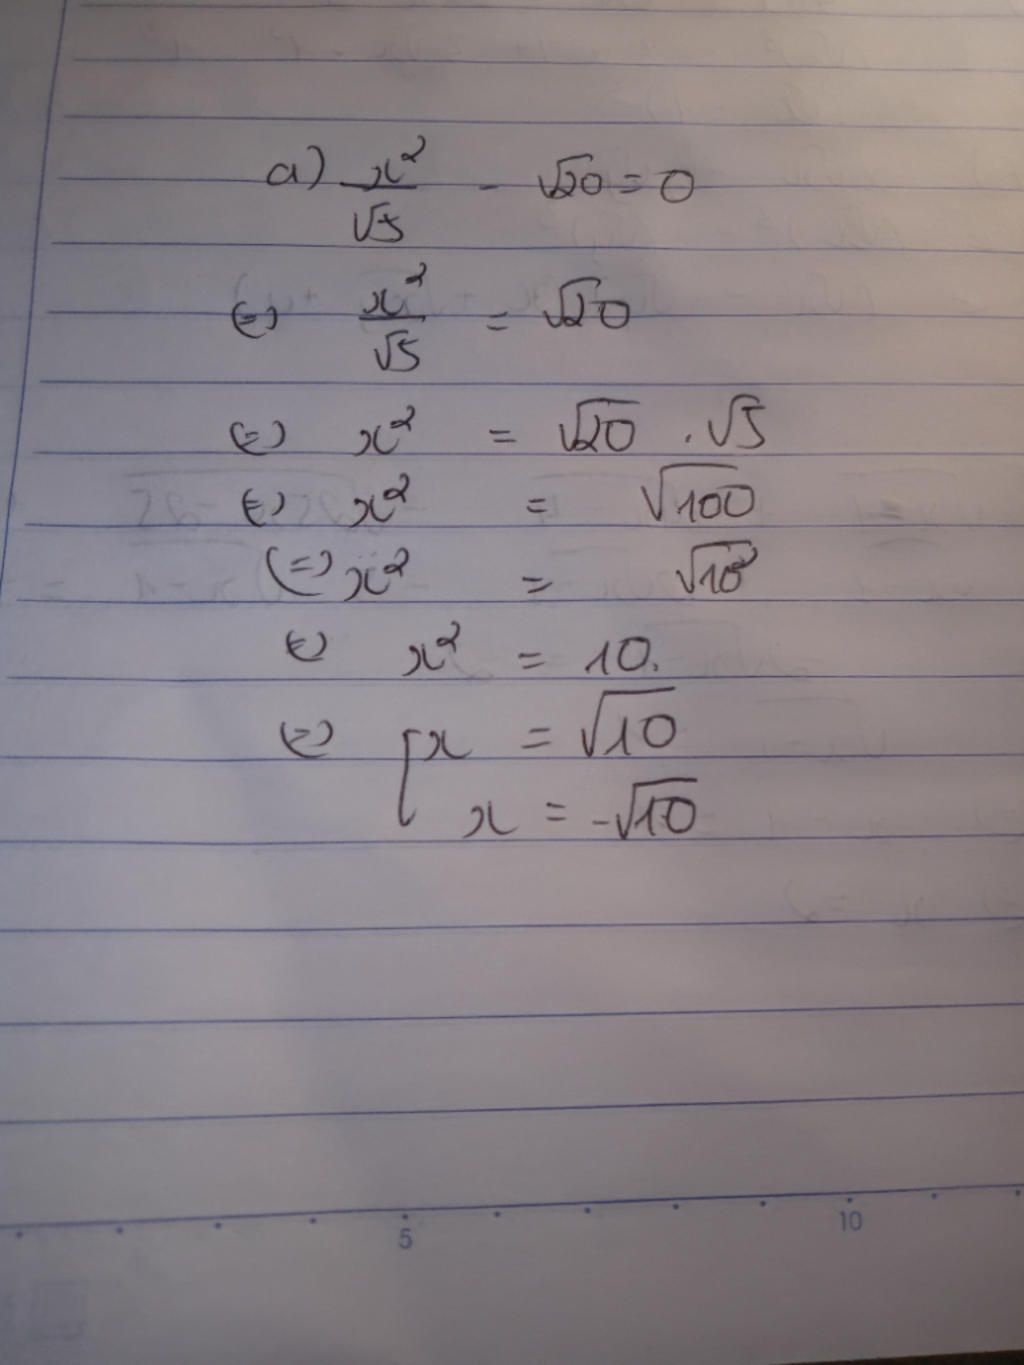 a) x²/√5 - √20 = 0
⇔ x²/√5 = √20
⇔ x² = √20 . √5
⇔ x² = √100
⇔ x² = √10²
⇔ x² = 10.
⇔ [x = √10
x = -√10
5 10